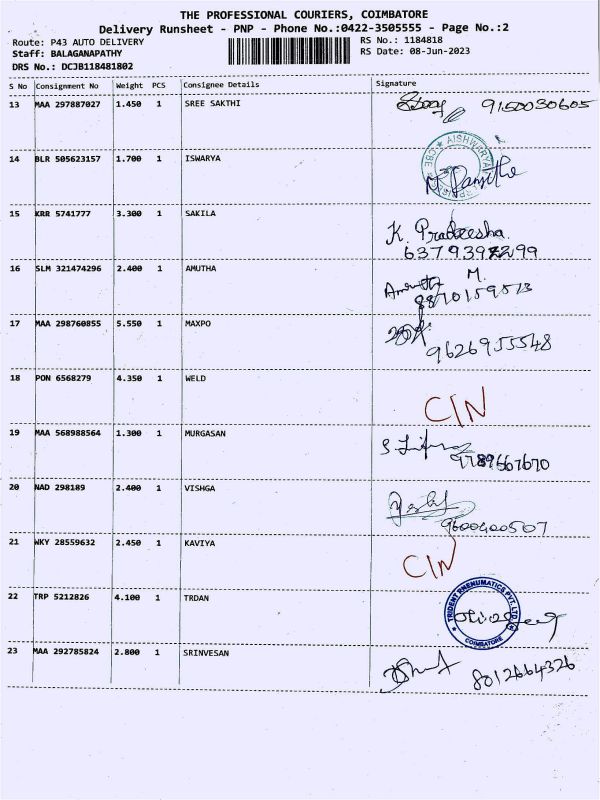 THE PROFESSIONAL COURIERS, COIMBATORE
Delivery Runsheet - PNP - Phone No.:0422-3505555 - Page No.:2
Route: P43 AUTO DELIVERY RS No.: 1184818
Staff: BALAGANAPATHY RS Date: 08-Jun-2023
DRS No.: DCJB118481802
S No Consignment No Weight PCS Consignee Details Signature
13 MAA 297887027 1.450 1 SREE SAKTHI 9150030605
14 BLR 505623157 1.700 1 ISWARYA AISHWARYA CBE
15 KRR 5741777 3.300 1 SAKILA K. Pradeesha
16 SLM 321474296 2.400 1 AMUTHA Amutha M.
17 MAA 298760855 5.550 1 MAXPO
9626955548
18 PON 6568279 4.350 1 WELD C/N
19 MAA 568988564 1.300 1 MURGASAN
9789567670
20 NAD 298189 2.400 1 VISHGA
9600400507
21 WKY 28559632 2.450 1 KAVIYA C/N
22 TRP 5212826 4.100 1 TRDAN TRIDENT PNEUMATICS PVT. LTD. COIMBATORE
23 MAA 292785824 2.800 1 SRINVESAN 8012664326